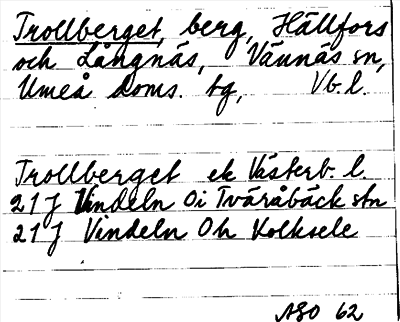 Trollberget, berg, Hällfors
och Långnäs, Vännäs sn,
Umeå doms. tg, Vb. l.
Trollberget ek Västerb. l.
21 J Vindeln 0i Tväråbäck stn
21 J Vindeln 0h Kolksele
ASO 62